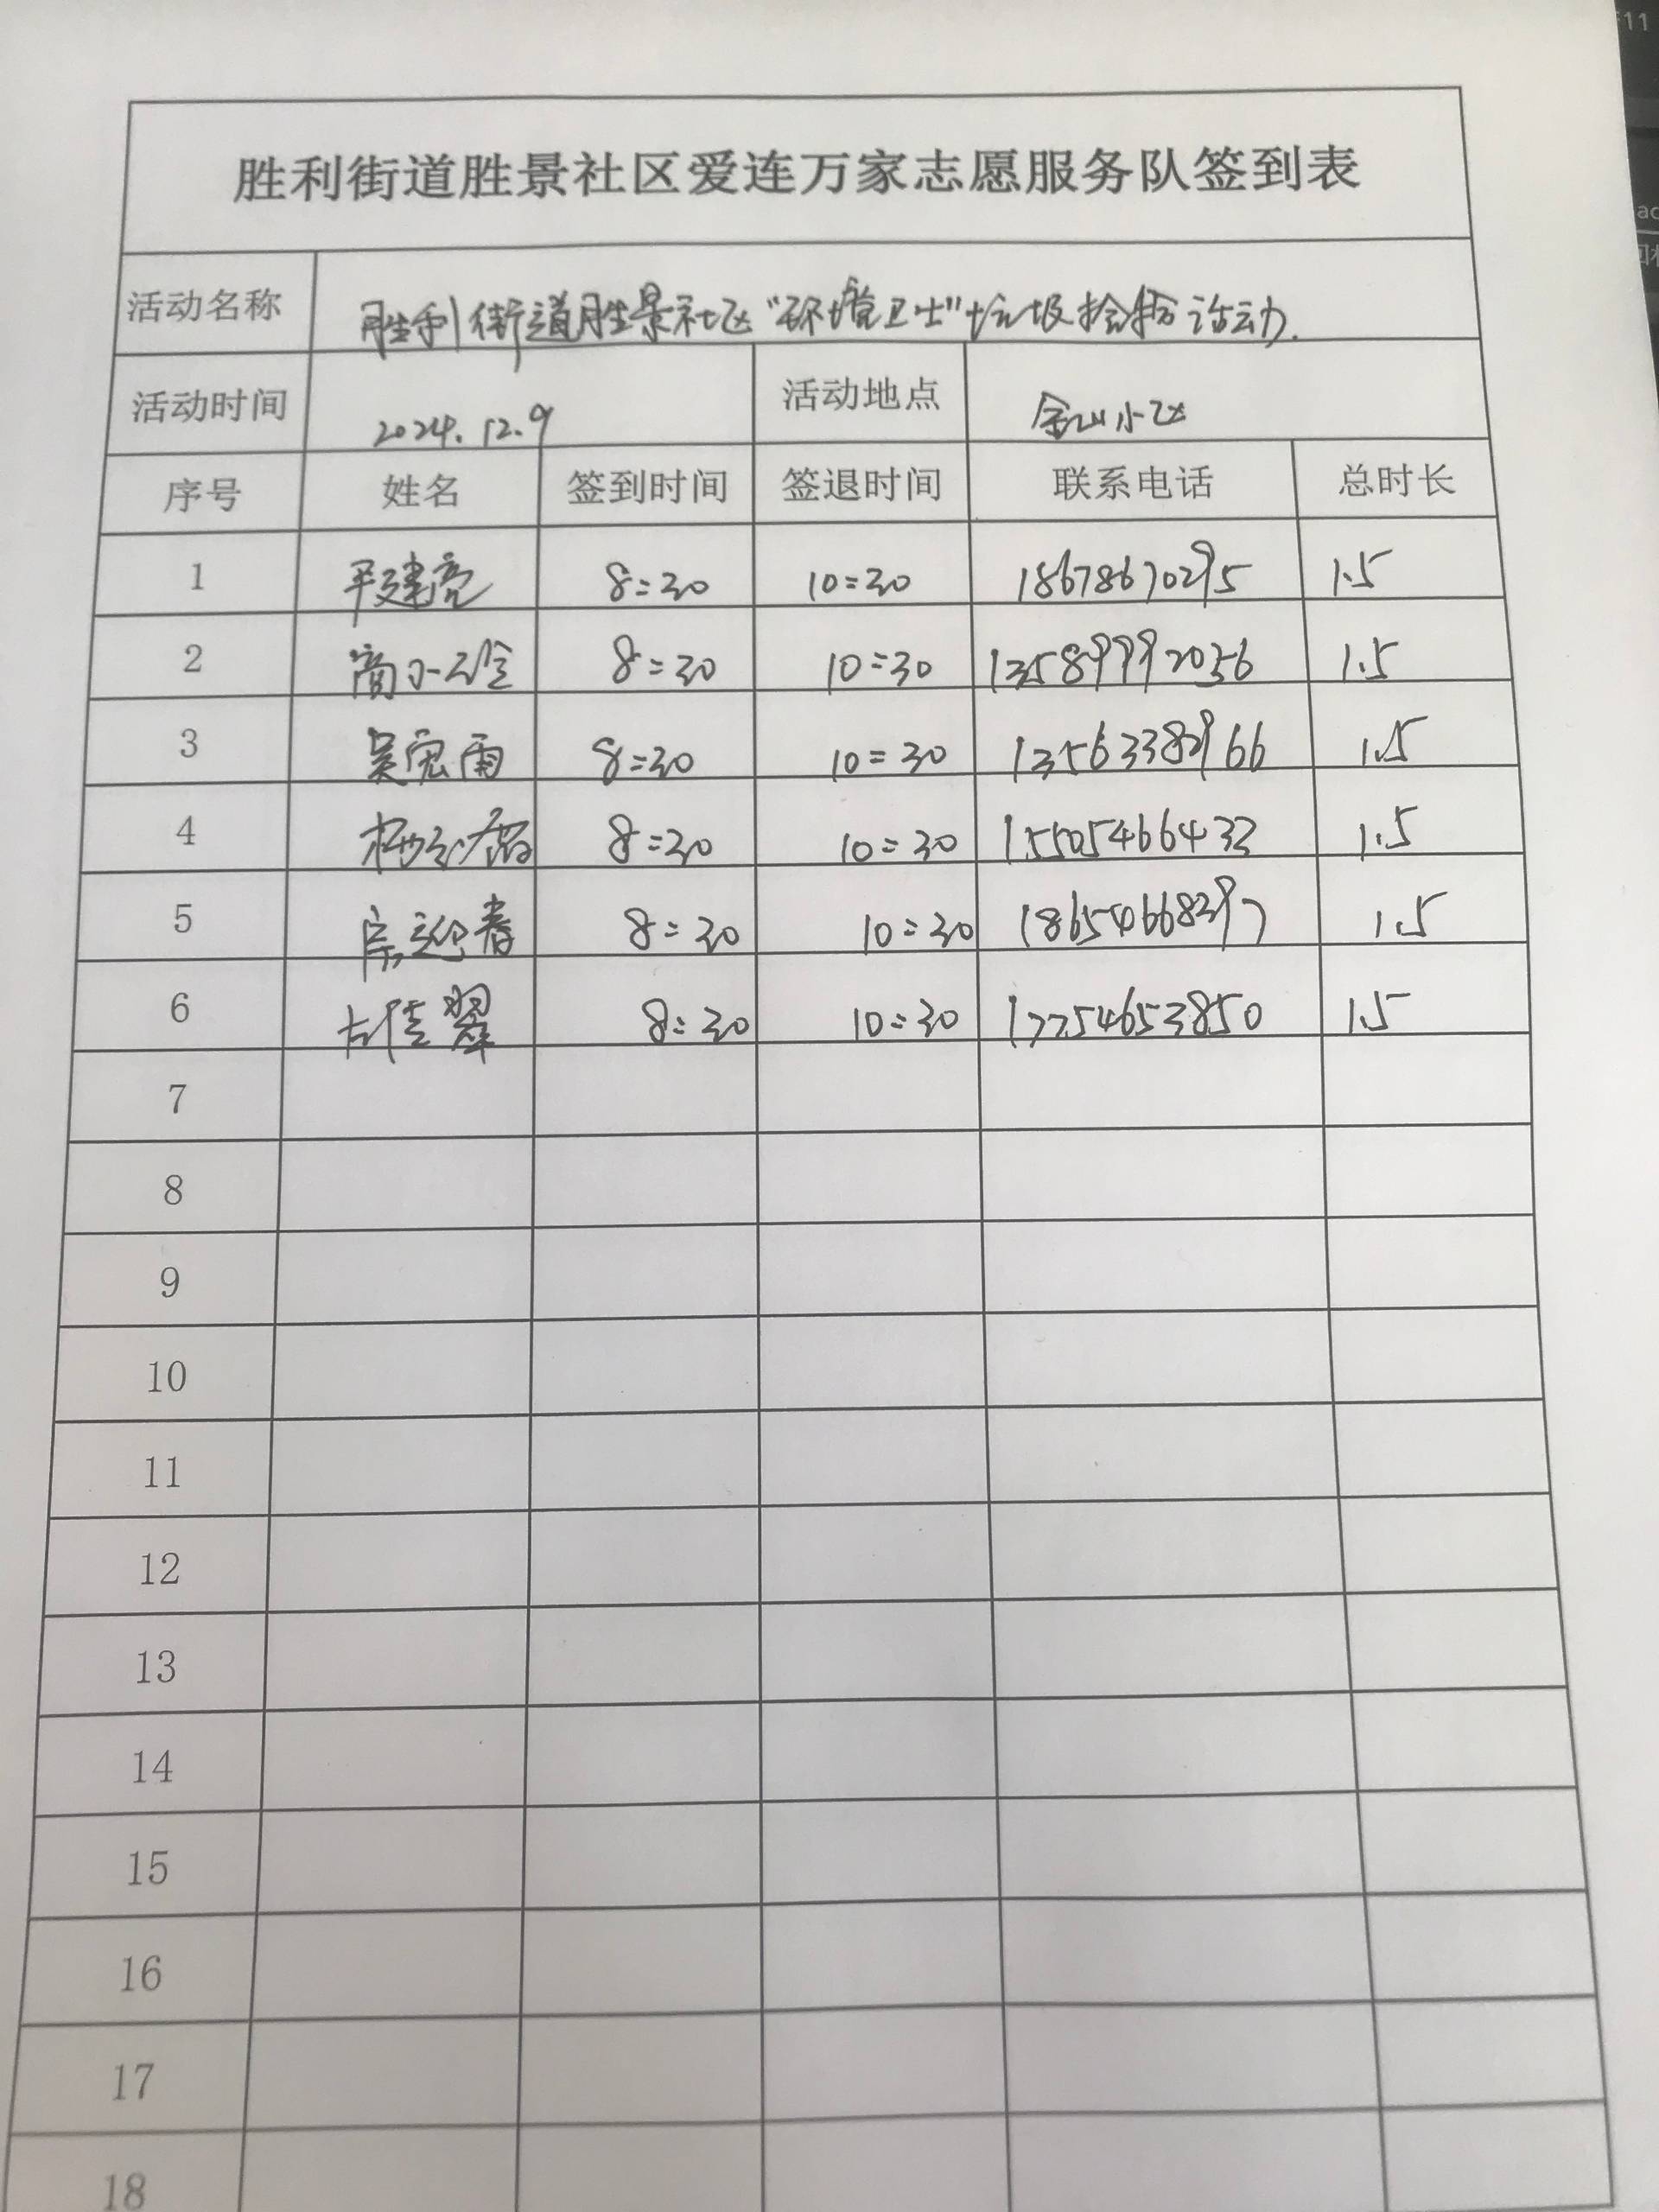 胜利街道胜景社区爱连万家志愿服务队签到表
活动名称 胜利街道胜景社区"环境卫士"垃圾捡拾活动.
活动时间 2024.12.9 活动地点 金山小区
序号 姓名 签到时间 签退时间 联系电话 总时长
1 平建亮 8:30 10:30 18678670295 1.5
2 商小玲 8:30 10:30 13589992056 1.5
3 吴宪雨 8:30 10:30 13563382966 1.5
4 8:30 10:30 15505466432 1.5
5 宗迎春 8:30 10:30 18654668297 1.5
6 佳翠 8:30 10:30 17754653850 1.5
7
8
9
10
11
12
13
14
15
16
17
18
11